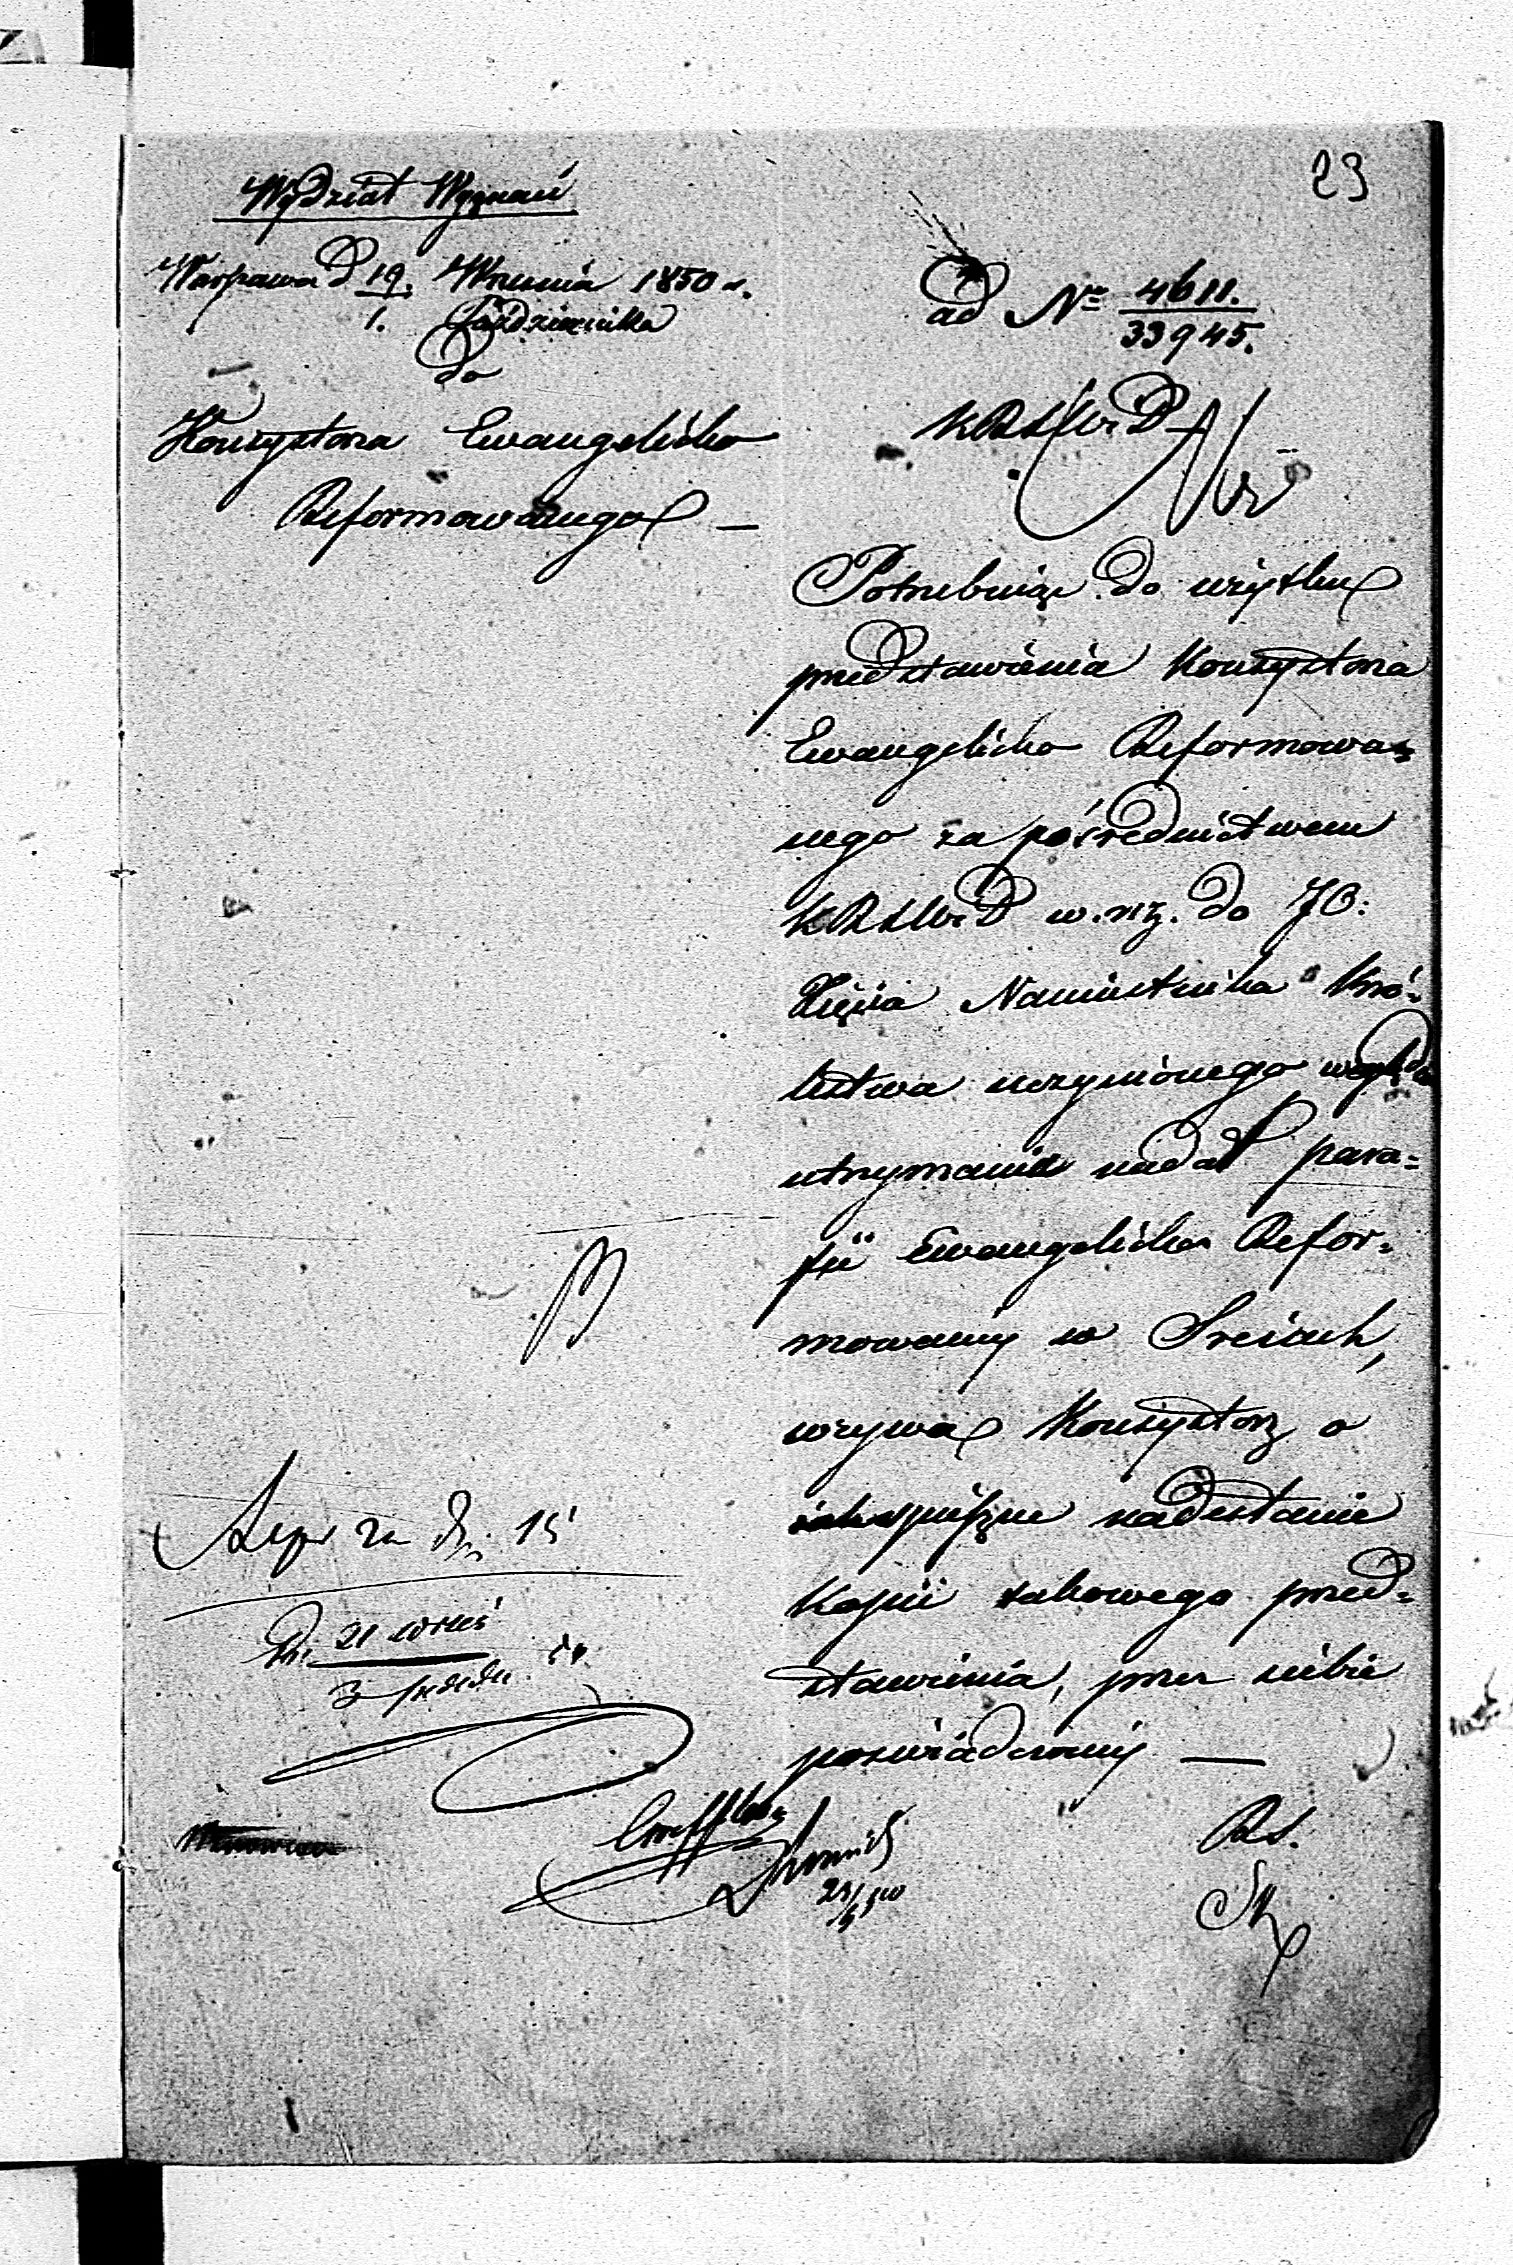 23
Wydział Wyznań
Warszawa d 19. Września 1850 r.
1. Października
do
Konsystorza Ewangelicko
Reformowanego —
ad Nr 4611.
33945.
KRSWiD
Potrzebuiąc do użytku
przedstawienia Konsystorza
Ewangelicko Reformowa=
nego za pośrednictwem
KRSWiD w. rz. do JO:
Xięcia Namiestnika Kró=
lestwa uczynionego względem
utrzymania nadal para=
fii Ewangelicko Refor=
mowaney w Sieciach,
wzywa Konsystorz o
spieszne nadesłanie
kopii takowego przed=
stawienia, przez siebie
poświadczoney —
za dni 15
21 wrześ
3 paźdz
29/9 50